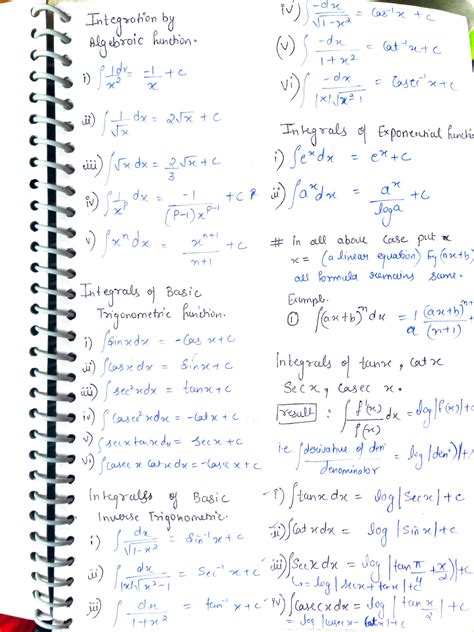 Integration by
Algebraic function.
i) ∫ 1/x² dx = -1/x + c
ii) ∫ 1/√x dx = 2√x + c
iii) ∫ √x dx = 2/3 √x + c
iv) ∫ 1/x^p dx = -1/((P-1) x^(P-1)) + c
v) ∫ x^n dx = x^(n+1)/(n+1) + c
Integrals of Basic
Trigonometric function.
i) ∫ sinx dx = -cosx + c
ii) ∫ cosx dx = sinx + c
iii) ∫ sec²x dx = tanx + c
iv) ∫ cosec²x dx = -cotx + c
v) ∫ secx tanx dx = secx + c
vi) ∫ cosecx cotx dx = -cosecx + c
Integrals of Basic
Inverse Trigonometric.
i) ∫ dx/√(1-x²) = sin⁻¹x + c
ii) ∫ dx/(|x|√(x²-1)) = sec⁻¹x + c
iii) ∫ dx/(1+x²) = tan⁻¹x + c
iv) ∫ -dx/√(1-x²) = cos⁻¹x + c
(v) ∫ -dx/(1+x²) = cot⁻¹x + c
vi) ∫ -dx/(|x|√(x²-1)) = cosec⁻¹x + c
Integrals of Exponential function
i) ∫ e^x dx = e^x + c
ii) ∫ a^x dx = a^x/loga + c
# In all above case put
x = (a linear equation) Eg (ax+b)
all formula remains same.
Example.
① ∫ (ax+b)^n dx = 1/a (ax+b)^(n+1)/(n+1)
Integrals of tanx, cotx
secx, cosecx.
result : ∫ f'(x)/f(x) dx = log|f(x)| + c
i.e ∫ derivative of den/denominator = log|den| + c
i) ∫ tanx dx = log|secx| + c
ii) ∫ cotx dx = log|sinx| + c
iii) ∫ secx dx = log|tan(π/4 + x/2)| + c
= log|secx + tanx| + c
iv) ∫ cosecx dx = log|tan x/2| + c
= log|cosecx - cotx| + c